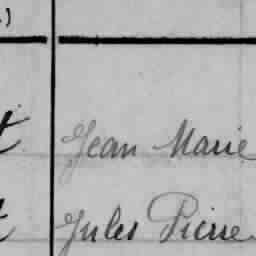 Jean Marie
Jules Pierre